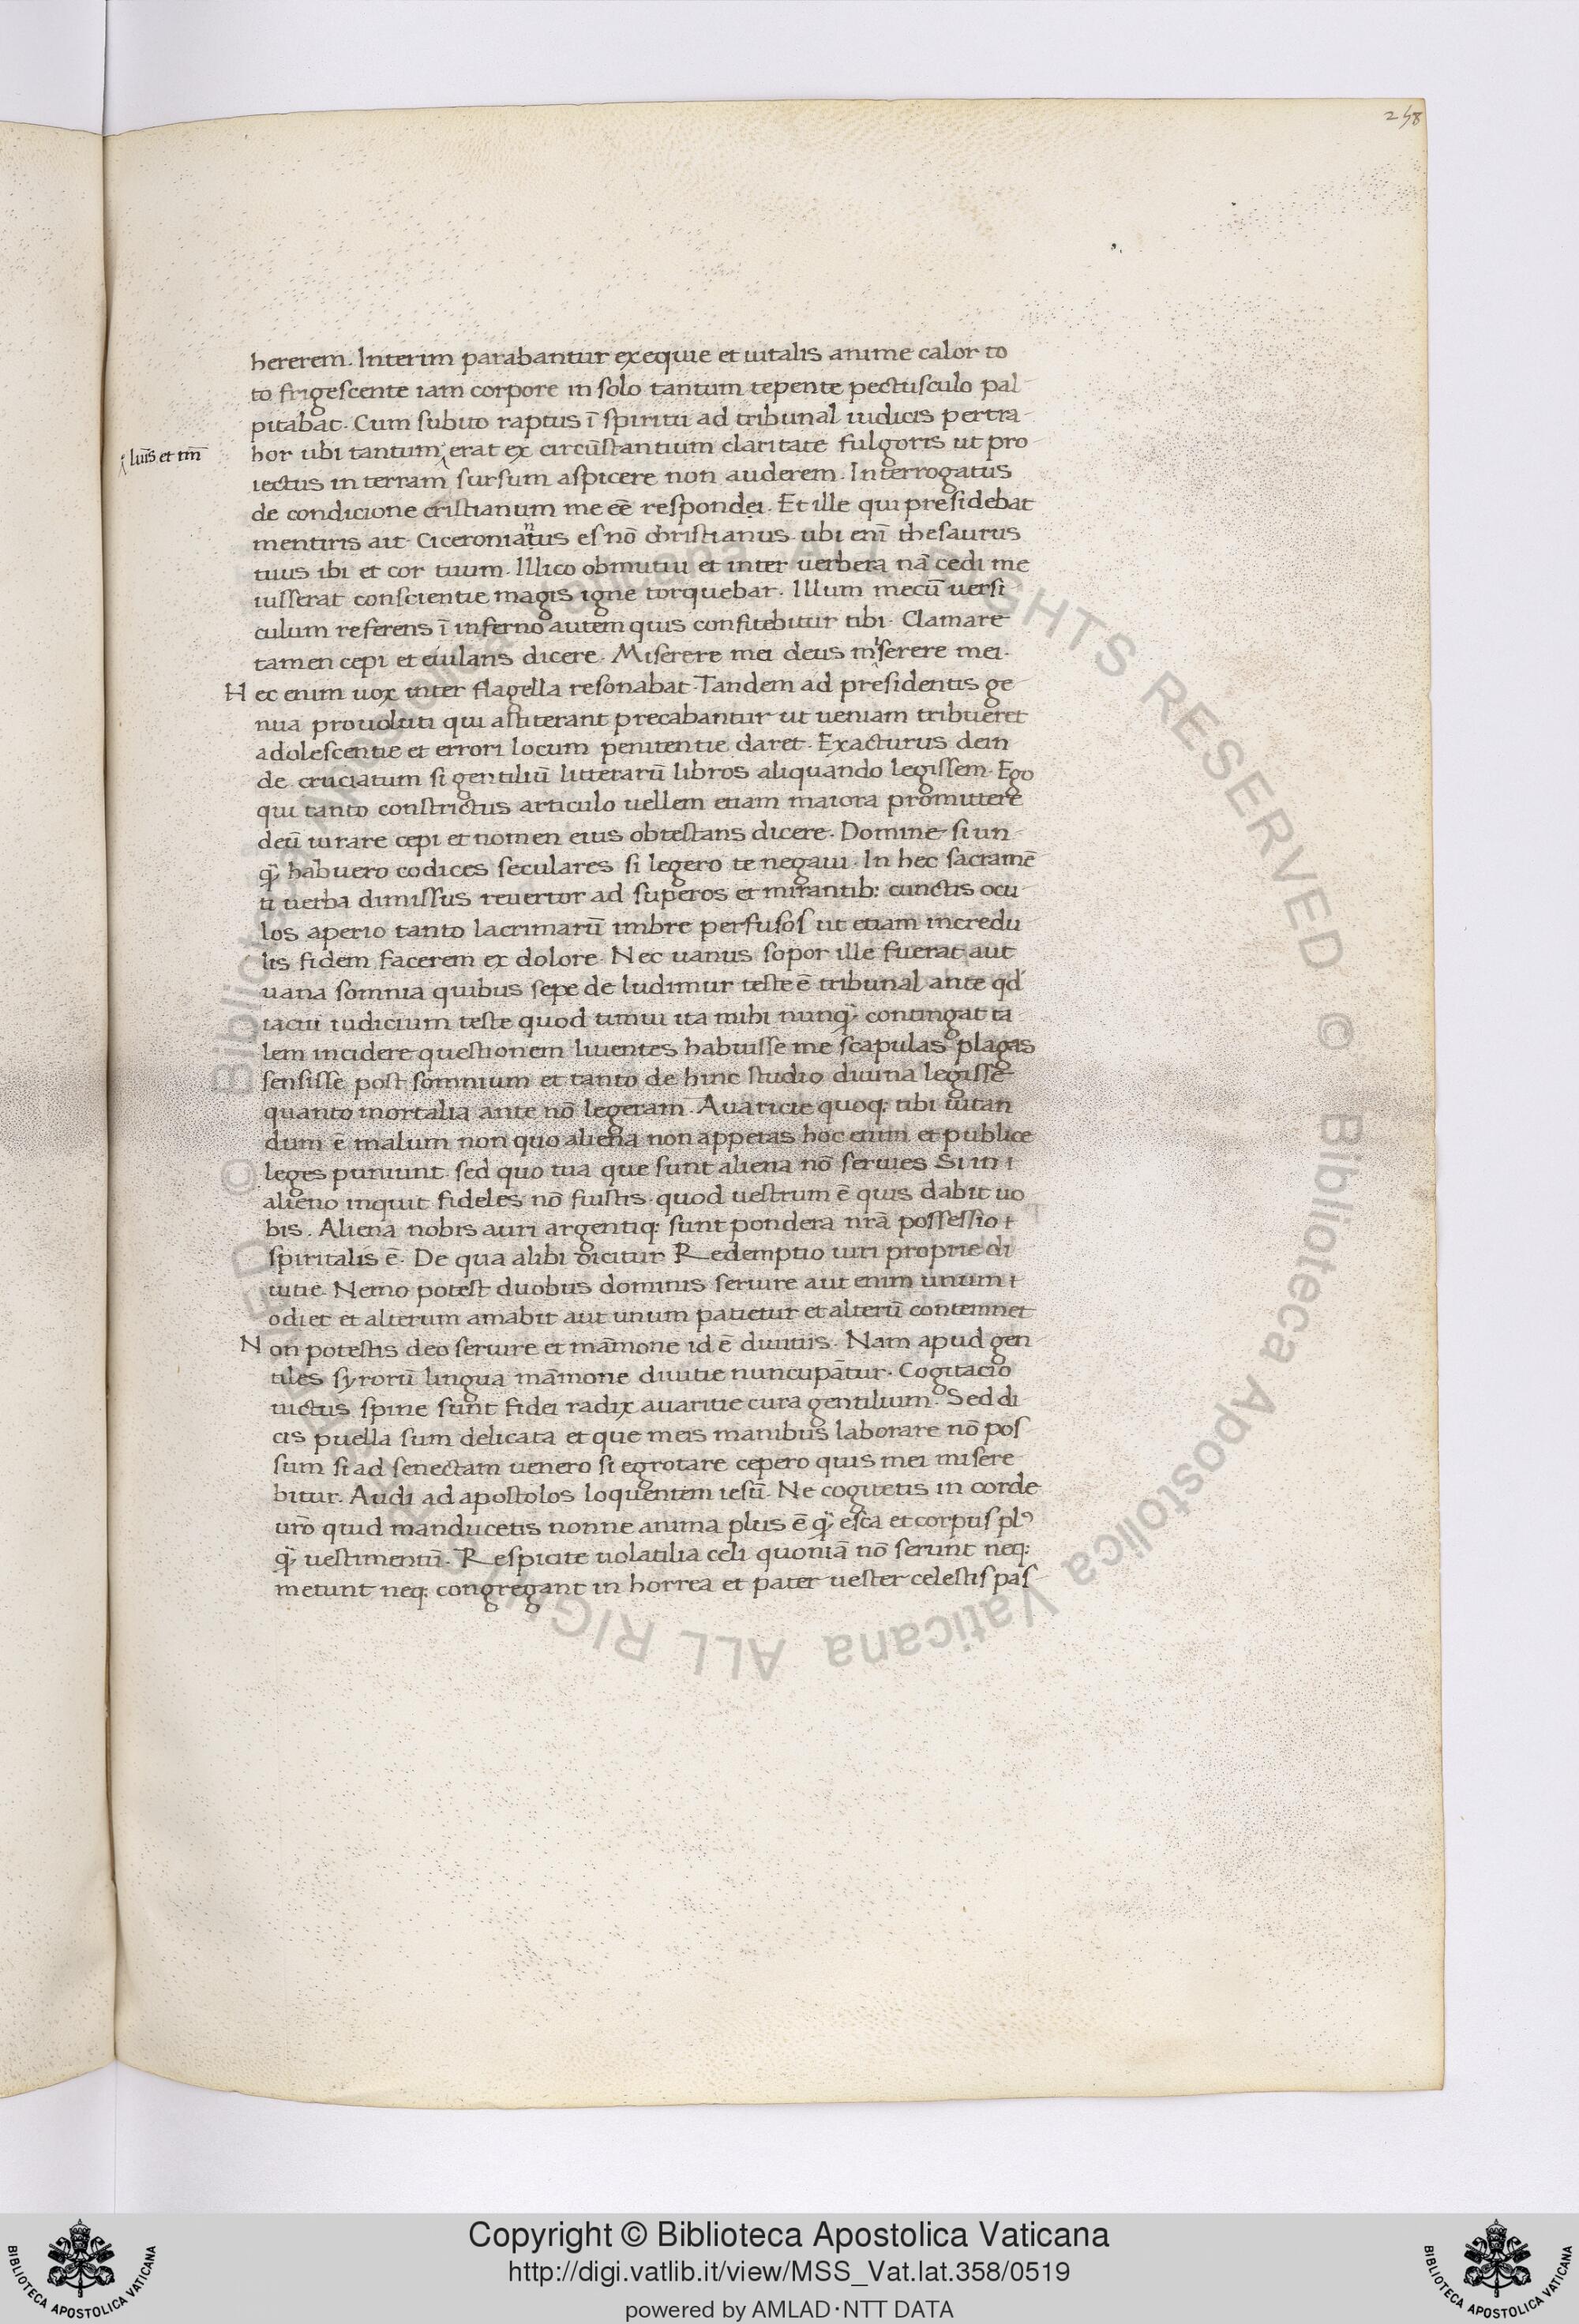 258
hererem. Interim parabantur exequie et uitalis anime calor to
to frigescente iam corpore in solo tantum tepente pectusculo pal-
pitabat. Cum subito raptus ī spiritu ad tribunal iudicis pertra-
hor ubi tantum erat ex circūstantium claritate fulgoris ut pro-
luīs et tm̄
iectus in terram sursum aspicere non auderem. Interrogatus
de condicione cristianum me eē respondei. Et ille qui presidebat
mentiris ait. Ciceronianus es nō christianus. ubi eni᷃ thesaurus
tuus ibi et cor tuum. Illico obmutui et inter uerbera nā cedi me
iusserat conscientie magis igne torquebar. Illum mecū uersi
culum referens ī inferno autem quis confitebitur tibi. Clamare
tamen cepi et eiulans dicere. Miserere mei deus miserere mei.
Hec enim uox inter flagella resonabat. Tandem ad presidentis ge-
nua prouoluti qui astiterant precabantur ut ueniam tribueret
adolescentie et errori locum penitentie daret. Exacturus dein
de cruciatum si gentiliū litterarū libros aliquando legissem. Ego
qui tanto constrictus articulo uellem etiam maiora promittere
deū iurare cepi et nomen eius obtestans dicere. Domine si un-
q̃ habuero codices seculares si legero te negaui. In hec sacramē
ti uerba dimissus reuertor ad superos et mirantib: cunctis ocu-
los aperio tanto lacrimarū imbre perfusos ut etiam incredu
lis fidem facerem ex dolore. Nec uanus sopor ille fuerat aut
uana somnia quibus sepe de ludimur teste ē tribunal ante qd
iacui iudicium teste quod timui ita mihi nunq̃ contingat ta
lem incidere questionem liuentes habuisse me scapulas plagas
sensisse post somnium et tanto de hinc studio diuina legisse
quanto mortalia ante nō legeram. Auaricie quoq: tibi uitan
dum ē malum non quo aliena non appetas hoc enim et publice
leges puniunt sed quo tua que sunt aliena nō serues Si in
alieno inquit fideles nō fuistis. quod uestrum ē quis dabit uo
bis. Aliena nobis auri argentiq: sunt pondera nr̄a possessio
spiritalis ē. De qua alibi dicitur Redemptio uiri proprie di
uitie. Nemo potest duobus dominis seruire aut enim unum
odiet et alterum amabit aut unum patietur et alterū contemnet
Non potestis deo seruire et māmone id ē diuitiis. Nam apud gen
tiles syrorū lingua māmone diuitie nuncupātur. Cogitacio
uictus spine sunt fidei radix auaritie cura gentilium. Sed di
cis puella sum delicata et que meis manibus laborare nō pos
sum si ad senectam uenero si egrotare cepero quis mei misere
bitur. Audi ad apostolos loquentem iesū. Ne cogitetis in corde
ur̄o quid manducetis nonne anima plus ē q̃ esca et corpus plꝰ
q̃ uestimentū. Respicite uolatilia celi quoniā nō serunt neq:
metunt neq: congregant in horrea et pater uester celestis pas-
© Biblioteca Apostolica Vaticana ALL RIGHTS RESERVED © Biblioteca Apostolica Vaticana ALL RIGHTS RESERVED
Copyright © Biblioteca Apostolica Vaticana
http://digi.vatlib.it/view/MSS_Vat.lat.358/0519
powered by AMLAD·NTT DATA
BIBLIOTECA APOSTOLICA VATICANA
BIBLIOTECA APOSTOLICA VATICANA